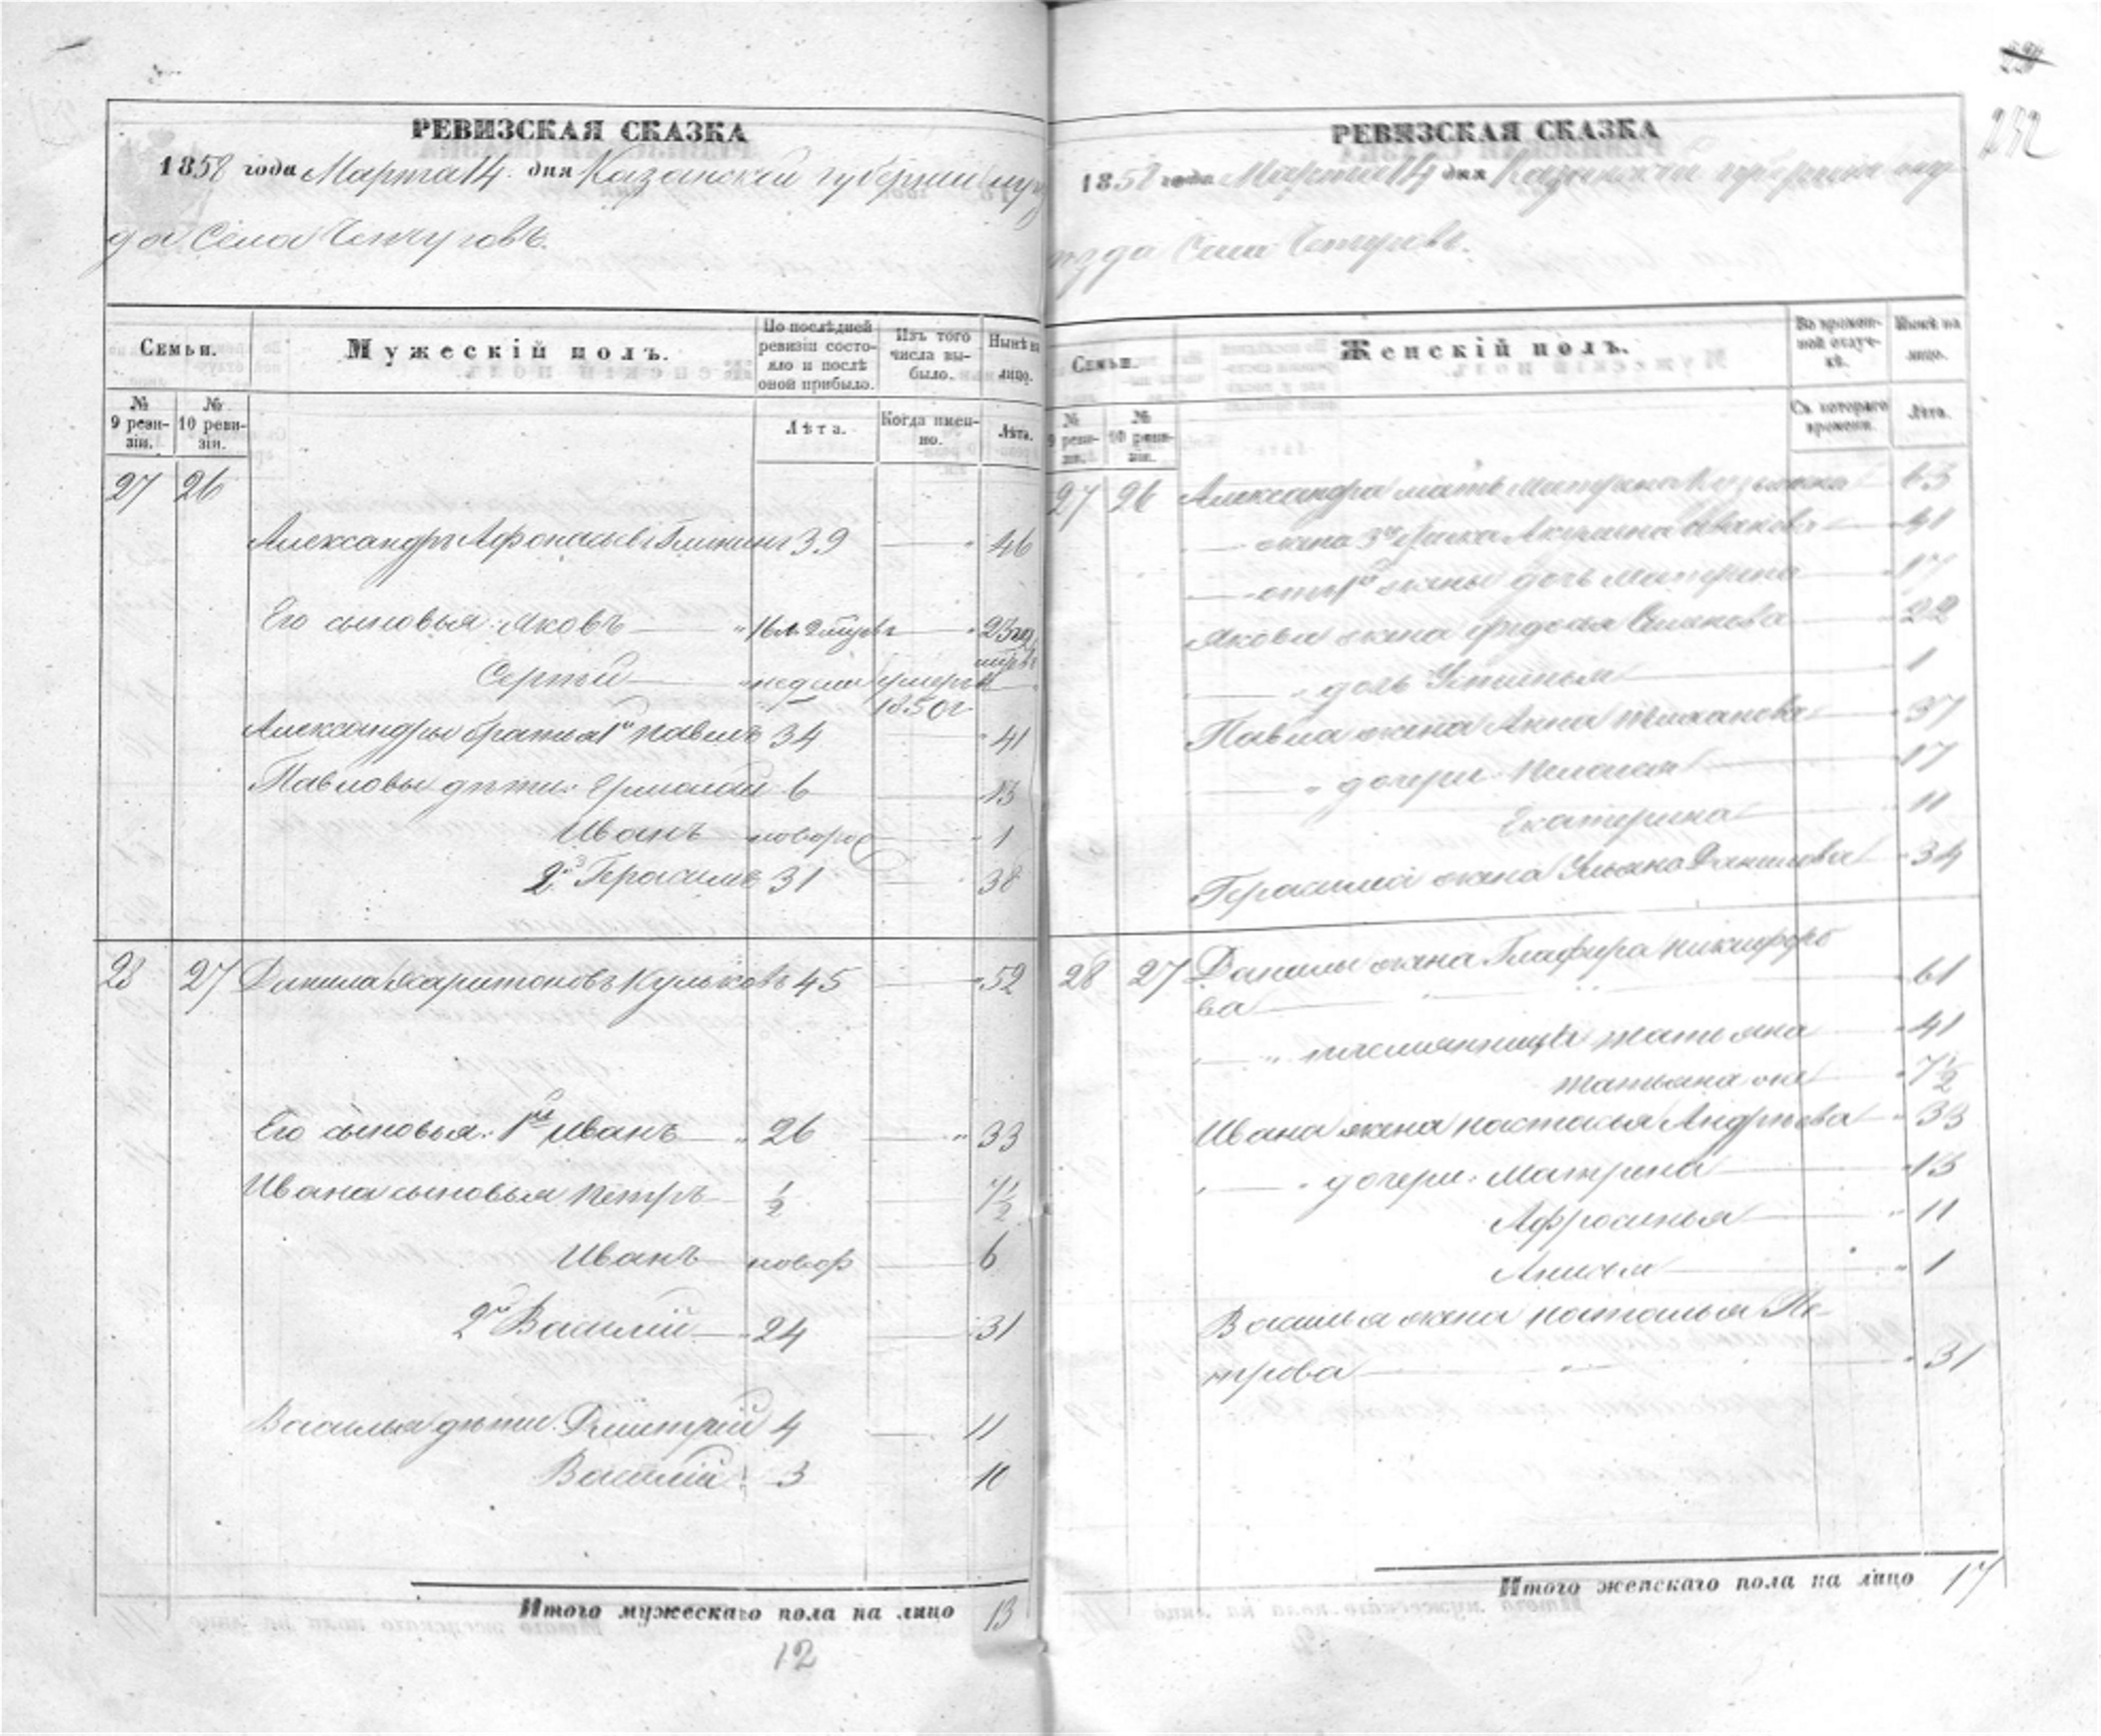 РЕВИЗСКАЯ СКАЗКА
1858 года Марта 14 дня Казанской губернии
да Села
Семьи.
Мужескій полъ.
По послѣдней ревизіи состояло и послѣ оной прибыло.
Изъ того числа выбыло.
Нынѣ на лицо.
№ 9 ревизіи.
№ 10 ревизіи.
Лѣта.
Когда именно.
Лѣта.
27 26
Александръ Афонасьевъ 39 46
Его сыновья: Яковъ 16 23
Сергей недели умеръ въ 1850 г
Александры братья 1й Павелъ 34 41
Павловы дѣти: Ермолай 6 13
Иванъ новорож 1
2й Герасимъ 31 38
28 27 Данила Харитоновъ Кульковъ 45 52
Его сыновья: 1й Иванъ 26 33
Ивана сыновья Петръ ½ 7½
Иванъ новор 6
2й Василій 24 31
Василья дѣти: Дмитрій 4 11
Василій 3 10
Итого мужескаго пола на лицо 13
12
252
РЕВИЗСКАЯ СКАЗКА
1858 года Марта 14 дня Казанской губернии
езда Села
Семьи.
Женскій полъ.
Во временной отлучкѣ.
Нынѣ на лицо.
№ 9 ревизіи.
№ 10 ревизіи.
Съ котораго времени.
Лѣта.
27 26 Александра мать Матрена 63
жена 3го брака Акулина Иванова 41
от 1й жены дочь Матрена 17
Якова жена Федосья Семенова 22
дочь Устинья 1
Павла жена Анна 37
дочери: Пелагея 17
Екатерина 11
Герасима жена Ульяна Данилова 34
28 27 Данилы жена Глафира Никифоро
ва 61
племянницы Татьяна 41
Татьяна 7½
Ивана жена Настасья Андреева 33
дочери: Матрена 13
Афросинья 11
Анисья 1
Василья жена Наталья Пе-
трова 31
Итого женскаго пола на лицо 17